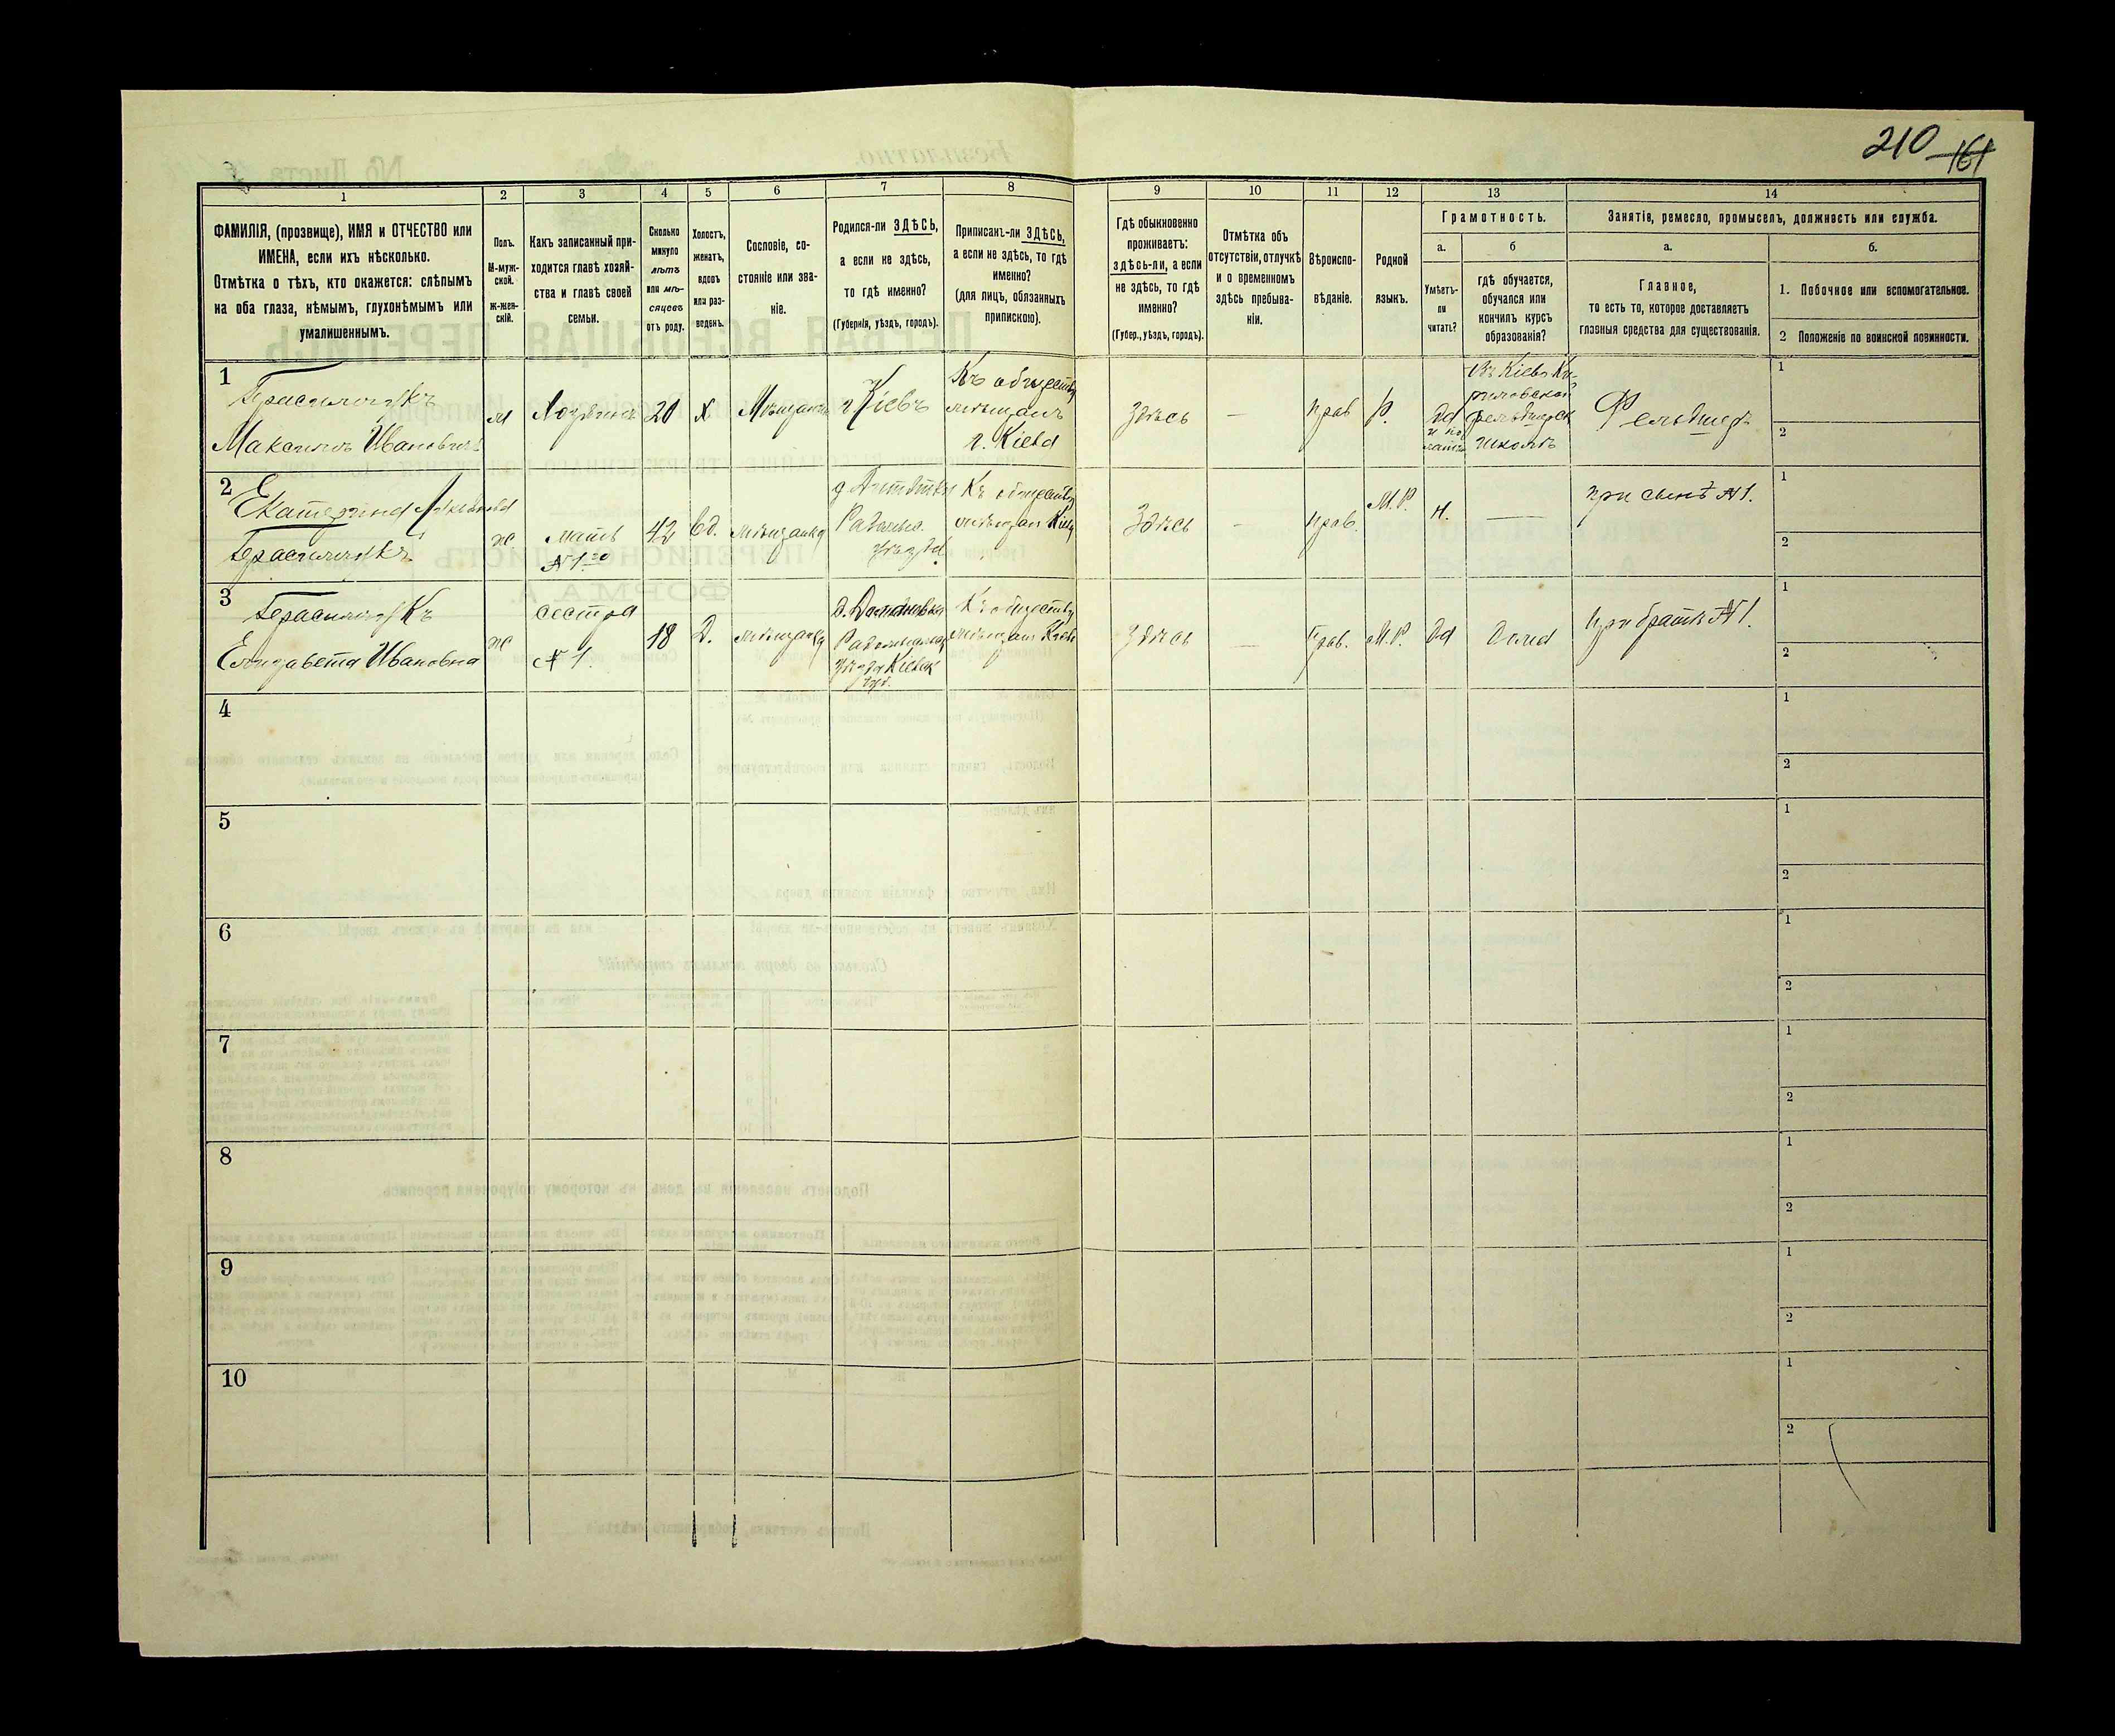 210 161
1
2
3
4
5
6
7
8
9
10
11
12
13
14
ФАМИЛІЯ, (прозвище), ИМЯ и ОТЧЕСТВО или
ИМЕНА, если ихъ нѣсколько.
Отмѣтка о тѣхъ, кто окажется: слѣпымъ
на оба глаза, нѣмымъ, глухонѣмымъ или
умалишеннымъ.
Полъ.
М-муж-
ской.
Ж-жен-
скій.
Какъ записанный при-
ходится главѣ хозяй-
ства и главѣ своей
семьи.
Сколько
минуло
лѣтъ
или мѣ-
сяцевъ
отъ роду.
Холостъ,
женатъ,
вдовъ
или раз-
веденъ.
Сословіе, со-
стояніе или зва-
ніе.
Родился-ли ЗДѢСЬ,
а если не здѣсь,
то гдѣ именно?
(Губернія, уѣздъ, городъ).
Приписанъ-ли ЗДѢСЬ,
а если не здѣсь, то гдѣ
именно?
(для лицъ, обязанныхъ
припискою).
Гдѣ обыкновенно
проживаетъ:
здѣсь-ли, а если
не здѣсь, то гдѣ
именно?
(Губер., уѣздъ, городъ).
Отмѣтка объ
отсутствіи, отлучкѣ
и о временномъ
здѣсь пребыва-
ніи.
Вѣроиспо-
вѣданіе.
Родной
языкъ.
Грамотность.
а.
Умѣетъ-
ли
читать?
б
гдѣ обучается,
обучался или
кончилъ курсъ
образованія?
Занятіе, ремесло, промыселъ, должность или служба.
а.
Главное,
то есть то, которое доставляетъ
главныя средства для существованія.
б.
1. Побочное или вспомогательное.
2 Положеніе по воинской повинности.
1
Герасимчукъ
Максимъ Ивановичъ
м
Хозяинъ
20
Х
Мѣщанинъ
г Кіевъ
Къ обществу
мѣщанъ
г. Кіева
Здѣсь
—
прав
Р.
Да
Въ Кіевѣ Ки-
риловской
фельдшерск
школѣ
Фельдшеръ
1
2
2
Екатерина
Герасимчукъ
ж
мать
№ 1го
42
вд.
мѣщанка
Радомыс.
уѣзда
Къ обществу
мѣщан Кіев
Здѣсь
—
прав.
М.Р.
Н.
—
при сынѣ № 1.
1
2
3
Герасимчукъ
Елизавета Ивановна
ж
сестра
№ 1.
18
Д.
мѣщанка
уѣзда Кіевск
губ.
Къ обществу
мѣщан Кіев
Здѣсь
—
Прав.
М.Р.
Да
Дома
При братѣ № 1.
1
2
4
1
2
5
1
2
6
1
2
7
1
2
8
1
2
9
1
2
10
1
2